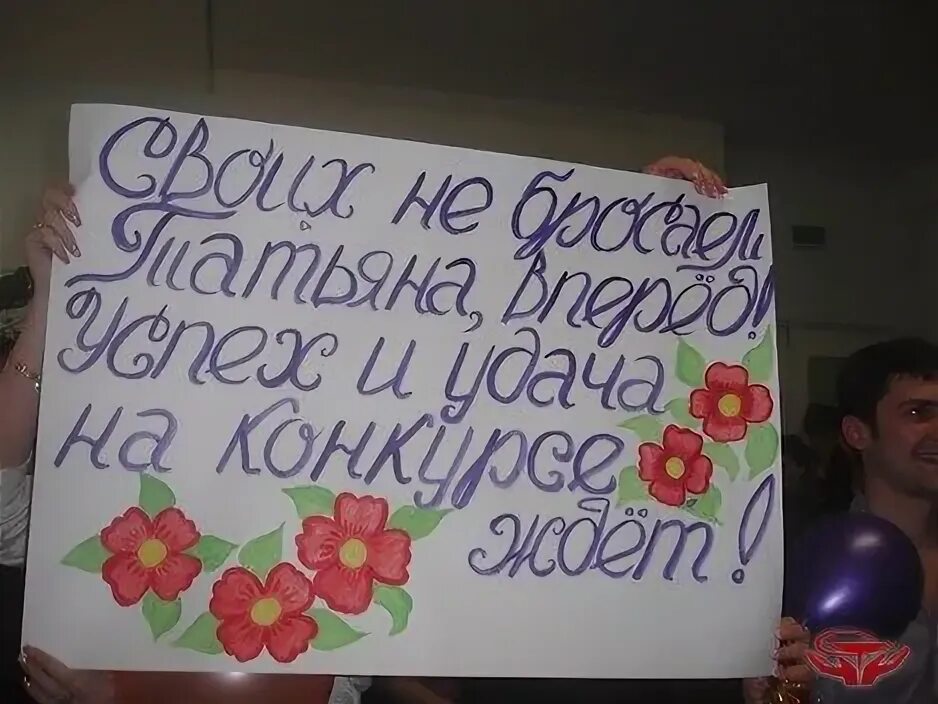 Своих не бросаем
Татьяна, вперёд!
Успех и удача
на конкурсе
ждёт!